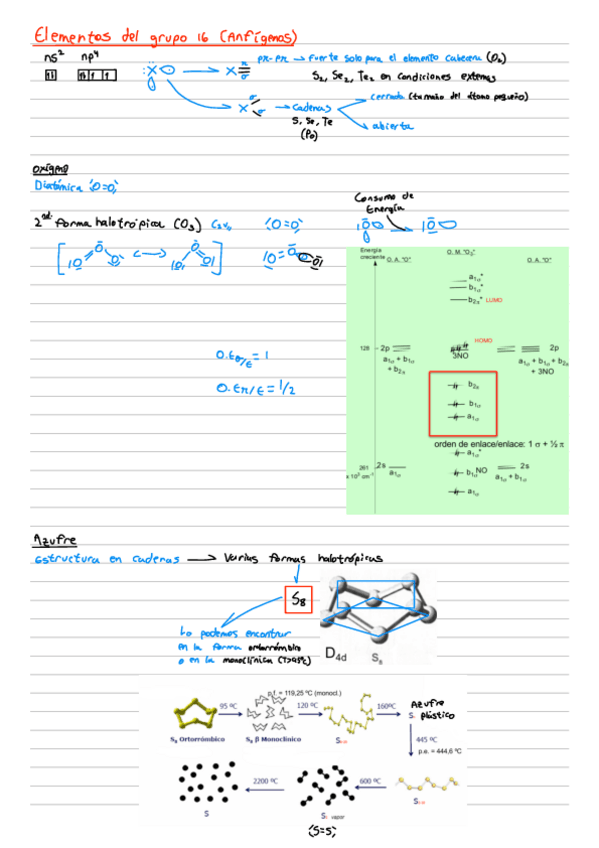 Elementos del grupo 16 (Anfígenos)
ns² np⁴
pπ-pπ → fuerte solo para el elemento cabecera (O₂)
S₂, Se₂, Te₂ en condiciones extremas
X → X π σ
X σ σ → cadenas
S, Se, Te
(Po)
cerrada (tamaño del átomo pequeño)
abierta
Oxígeno
Diatómica O=O
Consumo de
Energía
2nd forma halotrópica (O₃) C₂ᵥ O=O
O.Eσ/E = 1
O.Eπ/E = 1/2
Energía
creciente
O. A. "O"
O. M. "O₃"
O. A. "O"
a₁σ*
b₁σ*
b₂π* LUMO
HOMO
128
2p
3NO
2p
a₁σ + b₁σ
+ b₂π
a₁σ + b₁σ + b₂π
+ 3NO
b₂π
b₁σ
a₁σ
orden de enlace/enlace: 1 σ + ½ π
a₁σ*
261
x 10³ cm⁻¹
2s
a₁σ
b₁σNO
2s
a₁σ + b₁σ
a₁σ
Azufre
Estructura en cadenas → Varias formas halotrópicas
S₈
Lo podemos encontrar
en la forma ortorrómbico
o en la monoclínica (T>95ºC)
D4d S₈
p.f. = 119,25 ºC (monocl.)
95 ºC
120 ºC
160ºC
Azufre
S∞ plástico
S₈ Ortorrómbico
S₈ β Monoclínico
445 ºC
p.e. = 444,6 ºC
2200 ºC
600 ºC
S
S₂ vapor
(S=S)